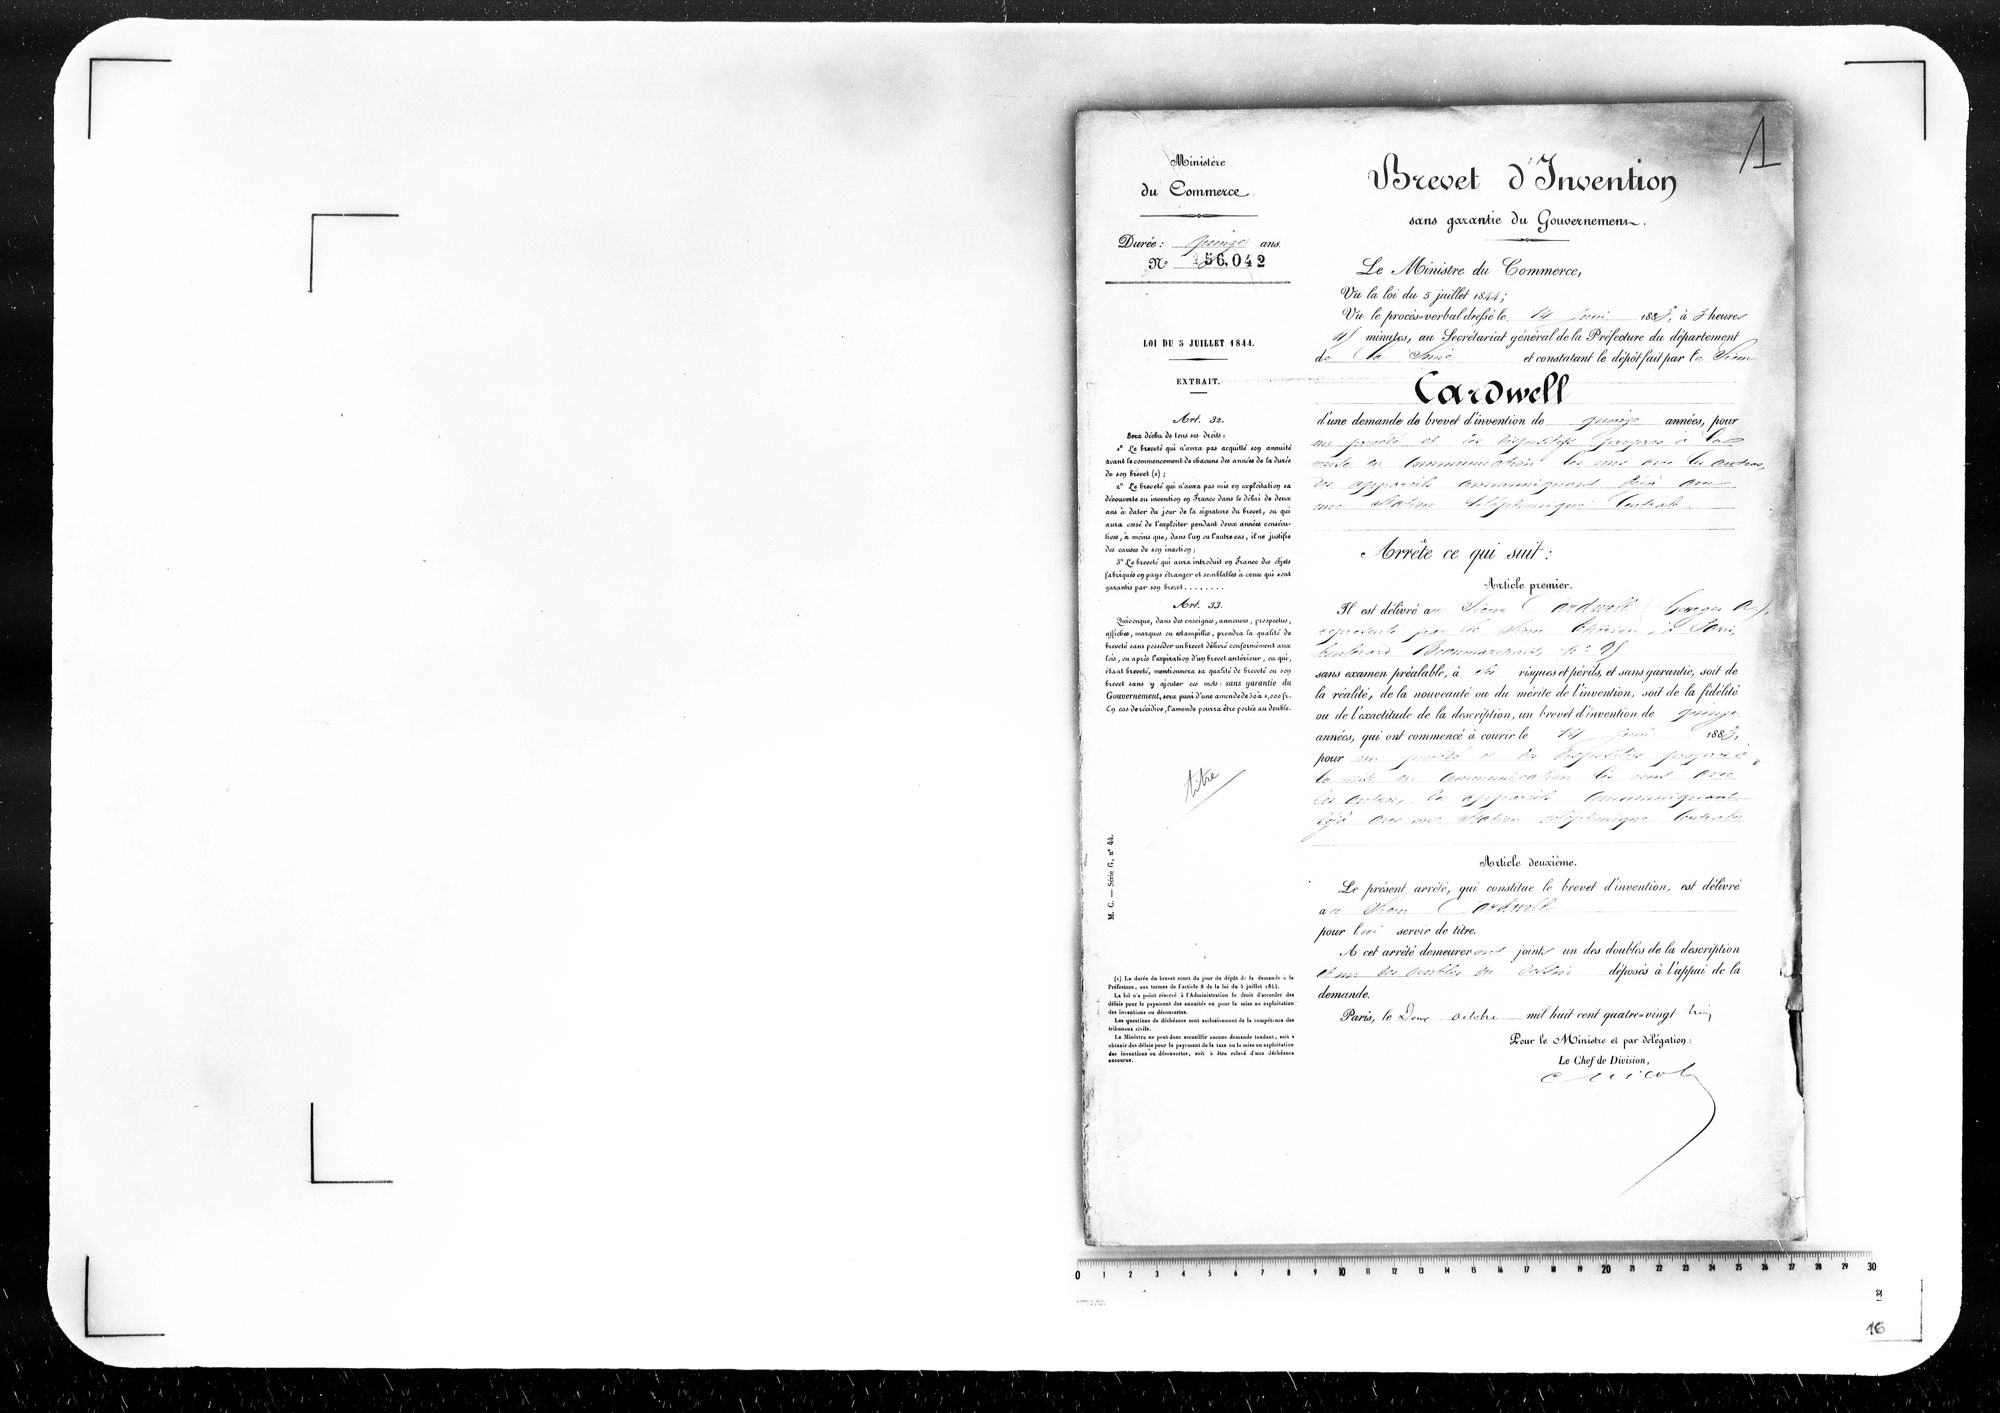 1
Ministère
du Commerce.
Durée: quinze ans.
N° 156,042
LOI DU 5 JUILLET 1844.
EXTRAIT.
Art. 32.
Sera déchu de tous ses droits:
1° Le breveté qui n'aura pas acquitté son annuité
avant le commencement de chacune des années de la durée
de son brevet (1);
2° Le breveté qui n'aura pas mis en exploitation sa
découverte ou invention en France dans le délai de deux
ans à dater du jour de la signature du brevet, ou qui
aura cessé de l'exploiter pendant deux années consécu-
tives, à moins que, dans l'un ou l'autre cas, il ne justifie
des causes de son inaction;
3° Le breveté qui aura introduit en France des objets
fabriqués en pays étranger et semblables à ceux qui sont
garantis par son brevet........
Art. 33.
Quiconque, dans des enseignes, annonces, prospectus,
affiches, marques ou estampilles, prendra la qualité de
breveté sans posséder un brevet délivré conformément aux
lois, ou après l'expiration d'un brevet antérieur, ou qui,
étant breveté, mentionnera sa qualité de breveté ou son
brevet sans y ajouter ces mots: sans garantie du
Gouvernement, sera puni d'une amende de 50 à 1,000 fr.
En cas de récidive, l'amende pourra être portée au double.
titre
M. C. — Série G, n° 44.
(1) La durée du brevet court du jour du dépôt de la demande à la
Préfecture, aux termes de l'article 8 de la loi du 5 juillet 1844.
La loi n'a point réservé à l'Administration le droit d'accorder des
délais pour le payement des annuités ou pour la mise en exploitation
des inventions ou découvertes.
Les questions de déchéance sont exclusivement de la compétence des
tribunaux civils.
Le Ministre ne peut donc accueillir aucune demande tendant, soit à
obtenir des délais pour le payement de la taxe ou la mise en exploitation
des inventions ou découvertes, soit à être relevé d'une déchéance
encourue.
Brevet d'Invention
sans garantie du Gouvernement.
Le Ministre du Commerce,
Vu la loi du 5 juillet 1844;
Vu le procès-verbal dressé le 14 juin 1883, à 3 heures
minutes, au Secrétariat général de la Préfecture du département
de la Seine et constatant le dépôt fait par le Sieur
Cardwell
d'une demande de brevet d'invention de quinze années, pour
un procédé et des dispositifs propres à la
mise en communication les uns avec les autres,
des appareils communiquant déjà avec
une station téléphonique centrale.
Arrête ce qui suit:
Article premier.
Il est délivré au Sieur Cardwell (Georges A.),
représenté par le Sieur Thirion, à Paris,
boulevard Beaumarchais, n° 95
sans examen préalable, à ses risques et périls, et sans garantie, soit de
la réalité, de la nouveauté ou du mérite de l'invention, soit de la fidélité
ou de l'exactitude de la description, un brevet d'invention de quinze
années, qui ont commencé à courir le 14 juin 1883,
pour un procédé et des dispositifs propres à
la mise en communication les uns avec
les autres, les appareils communiquant
déjà avec une station téléphonique centrale
Article deuxième.
Le présent arrêté, qui constitue le brevet d'invention, est délivré
au Sieur Cardwell
pour lui servir de titre.
A cet arrêté demeureront joints un des doubles de la description
et un des doubles du dessin déposés à l'appui de la
demande.
Paris, le Deux octobre mil huit cent quatre-vingt trois
Pour le Ministre et par délégation:
Le Chef de Division,
0 1 2 3 4 5 6 7 8 9 10 11 12 13 14 15 16 17 18 19 20 21 22 23 24 25 26 27 28 29 30
16